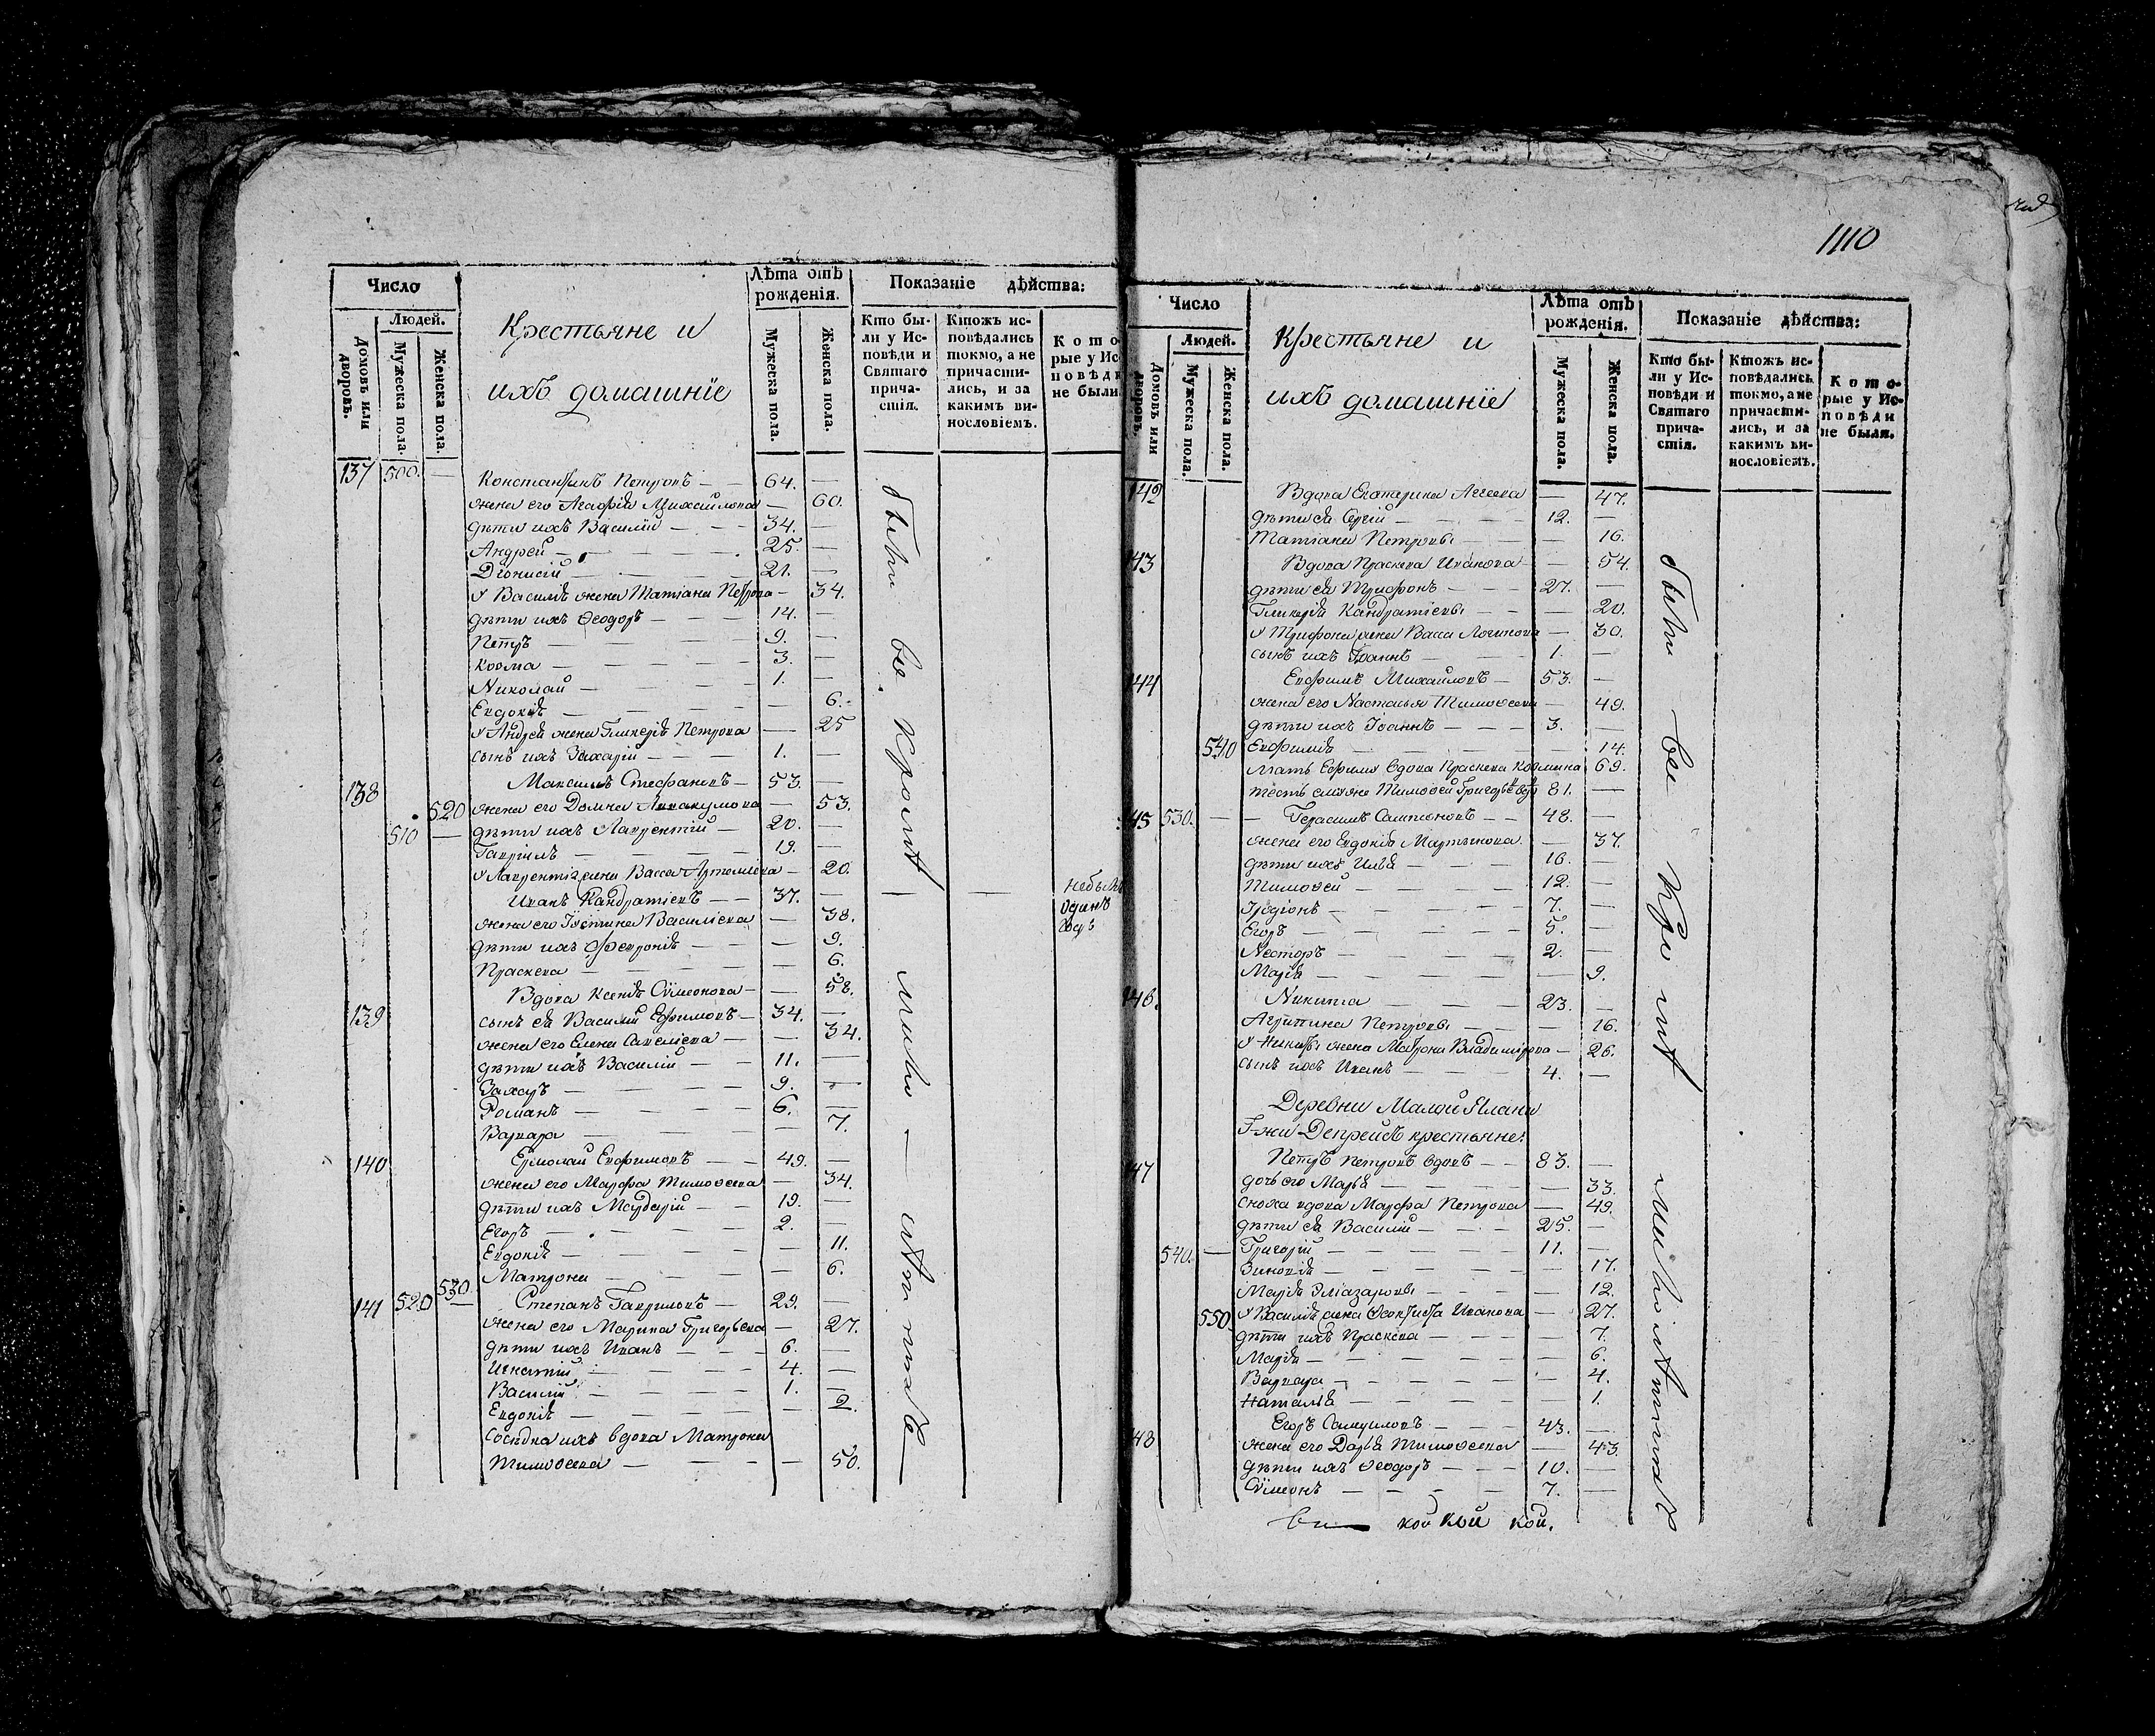 Число
Людей.
Домовъ или дворовъ.
Мужеска пола.
Женска пола.
Крестьяне и
ихъ домашніе
Лѣта отъ рожденія.
Мужеска пола.
Женска пола.
Показаніе дѣйства:
Кто бы-
ли у Ис-
повѣди и
Святаго
прича-
стія.
Ктожъ ис-
повѣдались
токмо, а не
причасти-
лись, и за
какимъ ви-
нословіемъ.
Кото
рые у Ис
повѣди
не были
137 500. — Константинъ Петровъ — 64. —
жена его Агафія Михайлова — 60.
дѣти ихъ Василій — 34. —
Андрей — 25. —
Діонисій — 21. —
У Василія жена Татіана Петрова — 34.
дѣти ихъ Ѳеодоръ — 14. —
Петръ — 9. —
Козма — 3. —
Николай — 1. —
Евдокія — 6.
У Андрея жена Гликерія Петрова — 25
сынъ ихъ Захарій — 1. —
138 Максимъ Стефановъ — 53. —
520 жена его Домна Аввакумова — 53.
510 — дѣти ихъ Лаврентій — 20. —
Гавріилъ — 19. —
У Лаврентія жена Васса Артемьева — 20.
Иванъ Кандратіевъ — 37. —
жена его Іустина Василіева — 38.
дѣти ихъ Февронія — 9.
Праскева — 6.
Вдова Ксенія Сѵмеонова — 58.
139 сынъ ея Василій Ефимовъ — 34. —
жена его Елена Савеліева — 34.
дѣти ихъ Василій — 11. —
Захаръ — 9. —
Романъ — 6. —
Варвара — 7.
140 Ермолай Евфимовъ — 49. —
жена его Марфа Тимоѳеева — 34.
дѣти ихъ Мардарій — 19. —
Егоръ — 2. —
Евдокія — 11.
Матрона — 6.
141 520 530 — Степанъ Гавриловъ — 29. —
жена его Марина Григорьева — 27.
дѣти ихъ Иванъ — 6. —
Игнатій — 4. —
Василій — 1. —
Евдокія — 2.
Сосѣдка ихъ вдова Матрона
Тимоѳеева — 50.
были все кромѣ
небылъ
Одинъ
годъ
1110
Число
Людей.
Домовъ или дворовъ.
Мужеска пола.
Женска пола.
Крестьяне и
ихъ домашніе
Лѣта отъ рожденія.
Мужеска пола.
Женска пола.
Показаніе дѣйства:
Кто бы-
ли у Ис-
повѣди и
Святаго
прича-
стія.
Ктожъ ис-
повѣдались
токмо, а не
причасти-
лись, и за
какимъ ви-
нословіемъ.
Кото-
рые у Ис-
повѣди
не были.
142 Вдова Екатерина Агеева — 47.
дѣти ея Сергій — 12. —
Татіана Петровы — 16.
143 Вдова Праскева Иванова — 54.
дѣти ея Трифонъ — 27. —
Гликерія Кандратіевы — 20.
У Трифона жена Васса Логинова — 30.
сынъ ихъ Іоаннъ — 1. —
144 Евфимъ Михайловъ — 53. —
жена его Настасья Тимоѳеева — 49.
дѣти ихъ Іоаннъ — 3. —
540 Евфимія — 14.
Мать Ефима вдова Праскева Козмина 69.
тесть Тимоѳей Григорьевъ 81. —
145 530. — Герасимъ Сампсоновъ — 48. —
жена его Евдокія Мартынова — 37.
дѣти ихъ Илья — 16. —
Тимоѳей — 12. —
Іродіонъ — 7. —
Егоръ — 5. —
Несторъ — 2. —
Марія — 9.
146. Никита — 23. —
Агрипина Петровы — 16.
У Никиты жена Матрона Владимірова — 26.
сынъ ихъ Иванъ — 4. —
Деревни Малой
Г-жи Депрейсъ крестьяне:
147 Петръ Петровъ вдовъ — 83. —
дочь его Марья — 33.
сноха вдова Марфа Петрова — 49.
дѣти ея Василій — 25. —
540. — Григорій — 11. —
Зиновія — 17.
Марія Эліазаровы — 12.
550 У Василія жена Ѳеоктиста Иванова — 27.
дѣти ихъ Праскева — 7.
Марія — 6.
Варвара — 4.
Наталья — 1.
Егоръ Самуиловъ — 43. —
148 жена его Дарья Тимоѳеева — 43.
дѣти ихъ Ѳеодоръ — 10. —
Сѵмеонъ — 7. —
были все кромѣ
кой кой кой.